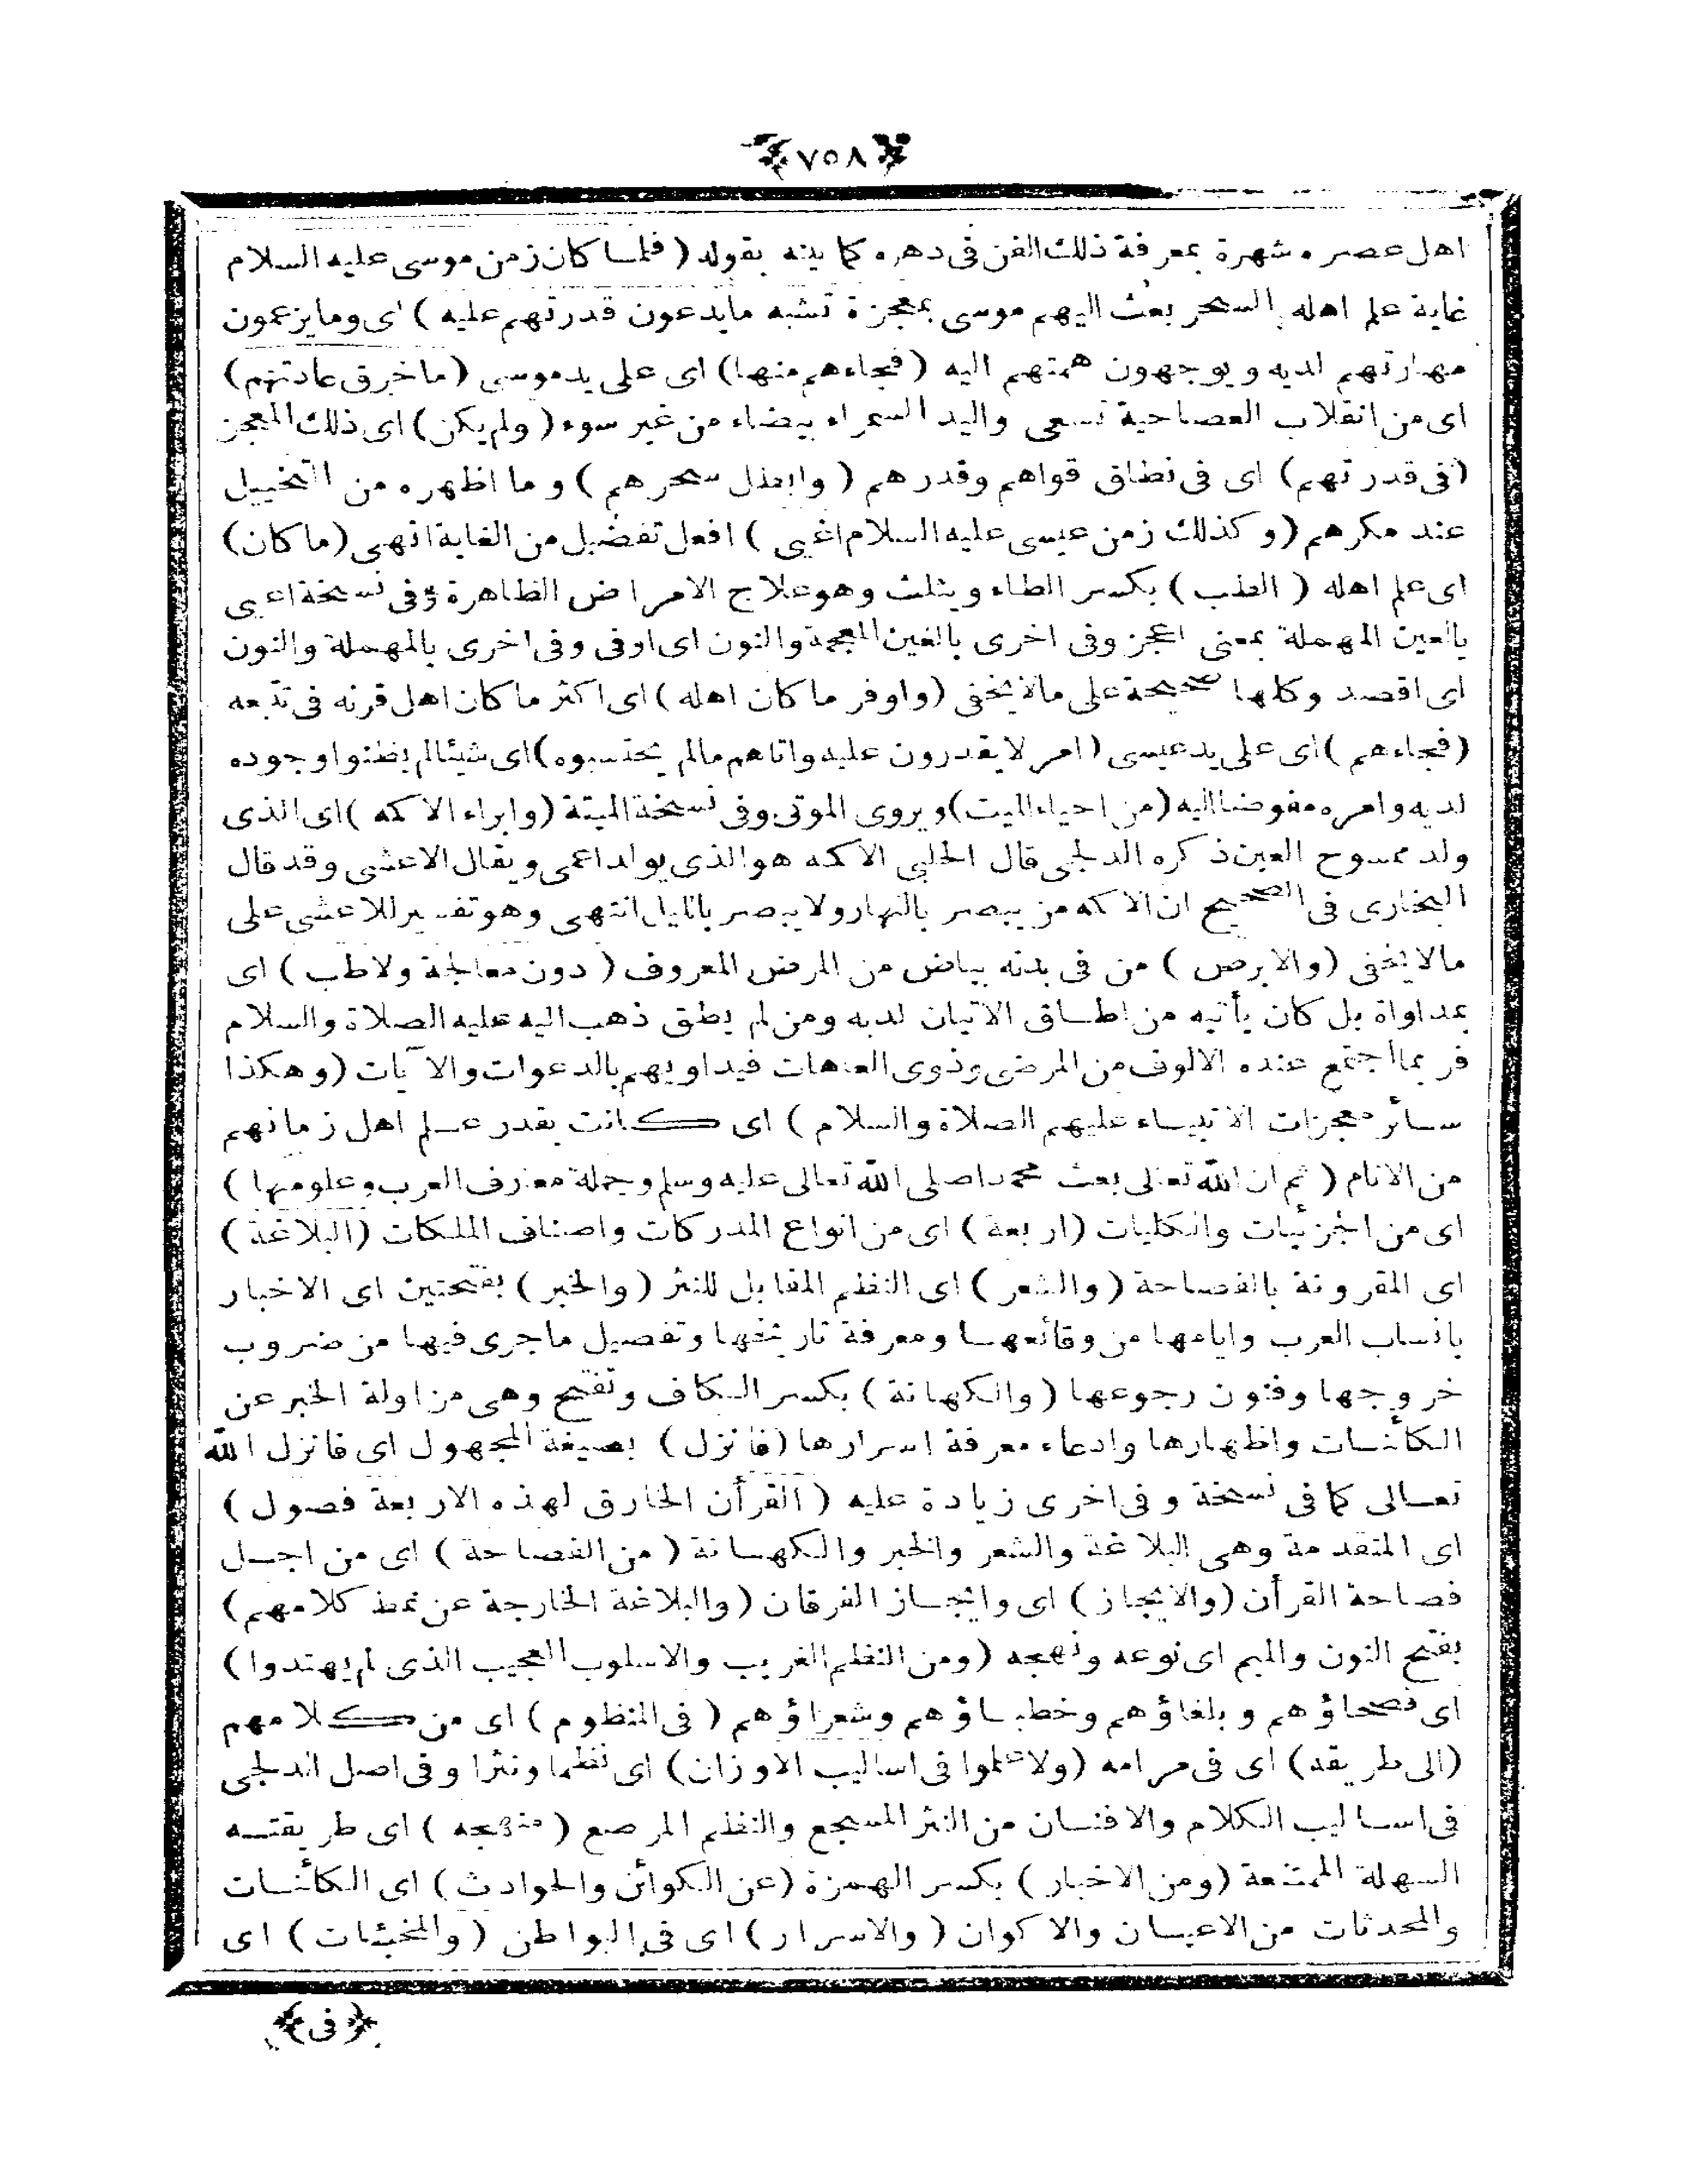 ﴿٧٥٨﴾
اهل عصره شهرة بمعرفة ذلك الفن فى دهره كما بينه بقوله (فلما كان زمن موسى عليه السلام
غاية علم اهله السحر بعث اليهم موسى بمعجزة تشبه مايدعون قدرتهم عليه) اى ومايزعمون
مهارتهم لديه ويوجهون همتهم اليه (فجاءهم منها) اى على يد موسى (ماخرق عادتهم)
اى من انقلاب العصاحية تسعى واليد السمراء بيضاء من غير سوء (ولم يكن) اى ذلك المعجز
(فى قدرتهم) اى فى نطاق قواهم وقدرهم (وابطل سحرهم) وما اظهره من التخييل
عند مكرهم (وكذلك زمن عيسى عليه السلام اغيى) افعل تفضيل من الغاية انهى (ما كان)
اى علم اهله (الطب) بكسر الطاء ويثلث وهو علاج الامراض الظاهرة وفى نسخة اعيى
بالعين المهملة بمعنى اعجز وفى اخرى بالغين المعجمة والنون اى اوفى وفى اخرى بالمهملة والنون
اى اقصد وكلها صحيحة على مالايخفى (واوفر ما كان اهله) اى اكثر ما كان اهل قرنه فى تتبعه
(فجاءهم) اى على يد عيسى (امر لايقدرون عليه واتاهم مالم يحتسبوه) اى شيئا لم يظنوا وجوده
لديه وامره مفوضا اليه (من احياء الميت) ويروى الموتى وفى نسخة الميتة (وابراء الاكمه) اى الذى
ولد ممسوح العين ذكره الدلجى قال الحلبى الاكمه هو الذى يولد اعمى ويقال الاعشى وقد قال
البخارى فى الصحيح ان الاكمه من يبصر بالنهار ولا يبصر بالليل انتهى وهو تفسير للاعشى على
مالايخفى (والابرص) من فى بدنه بياض من المرض المعروف (دون معالجة ولاطب) اى
بمداواة بل كان يأتيه من اطاق الاتيان لديه ومن لم يطق ذهب اليه عليه الصلاة والسلام
فربما اجتمع عنده الالوف من المرضى وذوى العاهات فيداويهم بالدعوات والآيات (وهكذا
سائر معجزات الانبياء عليهم الصلاة والسلام) اى كانت بقدر علم اهل زمانهم
من الانام (ثم ان الله تعالى بعث محمدا صلى الله تعالى عليه وسلم وجملة معارف العرب وعلومها)
اى من الجزئيات والكليات (اربعة) اى من انواع المدركات واصناف الملكات (البلاغة)
اى المقرونة بالفصاحة (والشعر) اى النظم المقابل للنثر (والخبر) بفتحتين اى الاخبار
بانساب العرب وايامها من وقائعها ومعرفة تاريخها وتفصيل ماجرى فيها من ضروب
خروجها وفنون رجوعها (والكهانة) بكسر الكاف وتفتح وهى مزاولة الخبر عن
الكائنات واظهارها وادعاء معرفة اسرارها (فانزل) بصيغة المجهول اى فانزل الله
تعالى كما فى نسخة وفى اخرى زيادة عليه (القرأن الخارق لهذه الاربعة فصول)
اى المتقدمة وهى البلاغة والشعر والخبر والكهانة (من الفصاحة) اى من اجل
فصاحة القرأن (والايجاز) اى وايجاز الفرقان (والبلاغة الخارجة عن نمط كلامهم)
بفتح النون والميم اى نوعه ونهجه (ومن النظم الغريب والاسلوب العجيب الذى لم يهتدوا)
اى فصحاؤهم وبلغاؤهم وخطباؤهم وشعراؤهم (فى المنظوم) اى من كلامهم
(الى طريقه) اى فى مرامه (ولاعلموا فى اساليب الاوزان) اى نظما ونثرا وفى اصل الدلجى
فى اساليب الكلام والافنان من النثر المسجع والنظم المرصع (منهجه) اى طريقته
السهلة الممتنعة (ومن الاخبار) بكسر الهمزة (عن الكوائن والحوادث) اى الكائنات
والمحدثات من الاعيان والاكوان (والاسرار) اى فى البواطن (والمخبئات) اى
﴿فى﴾